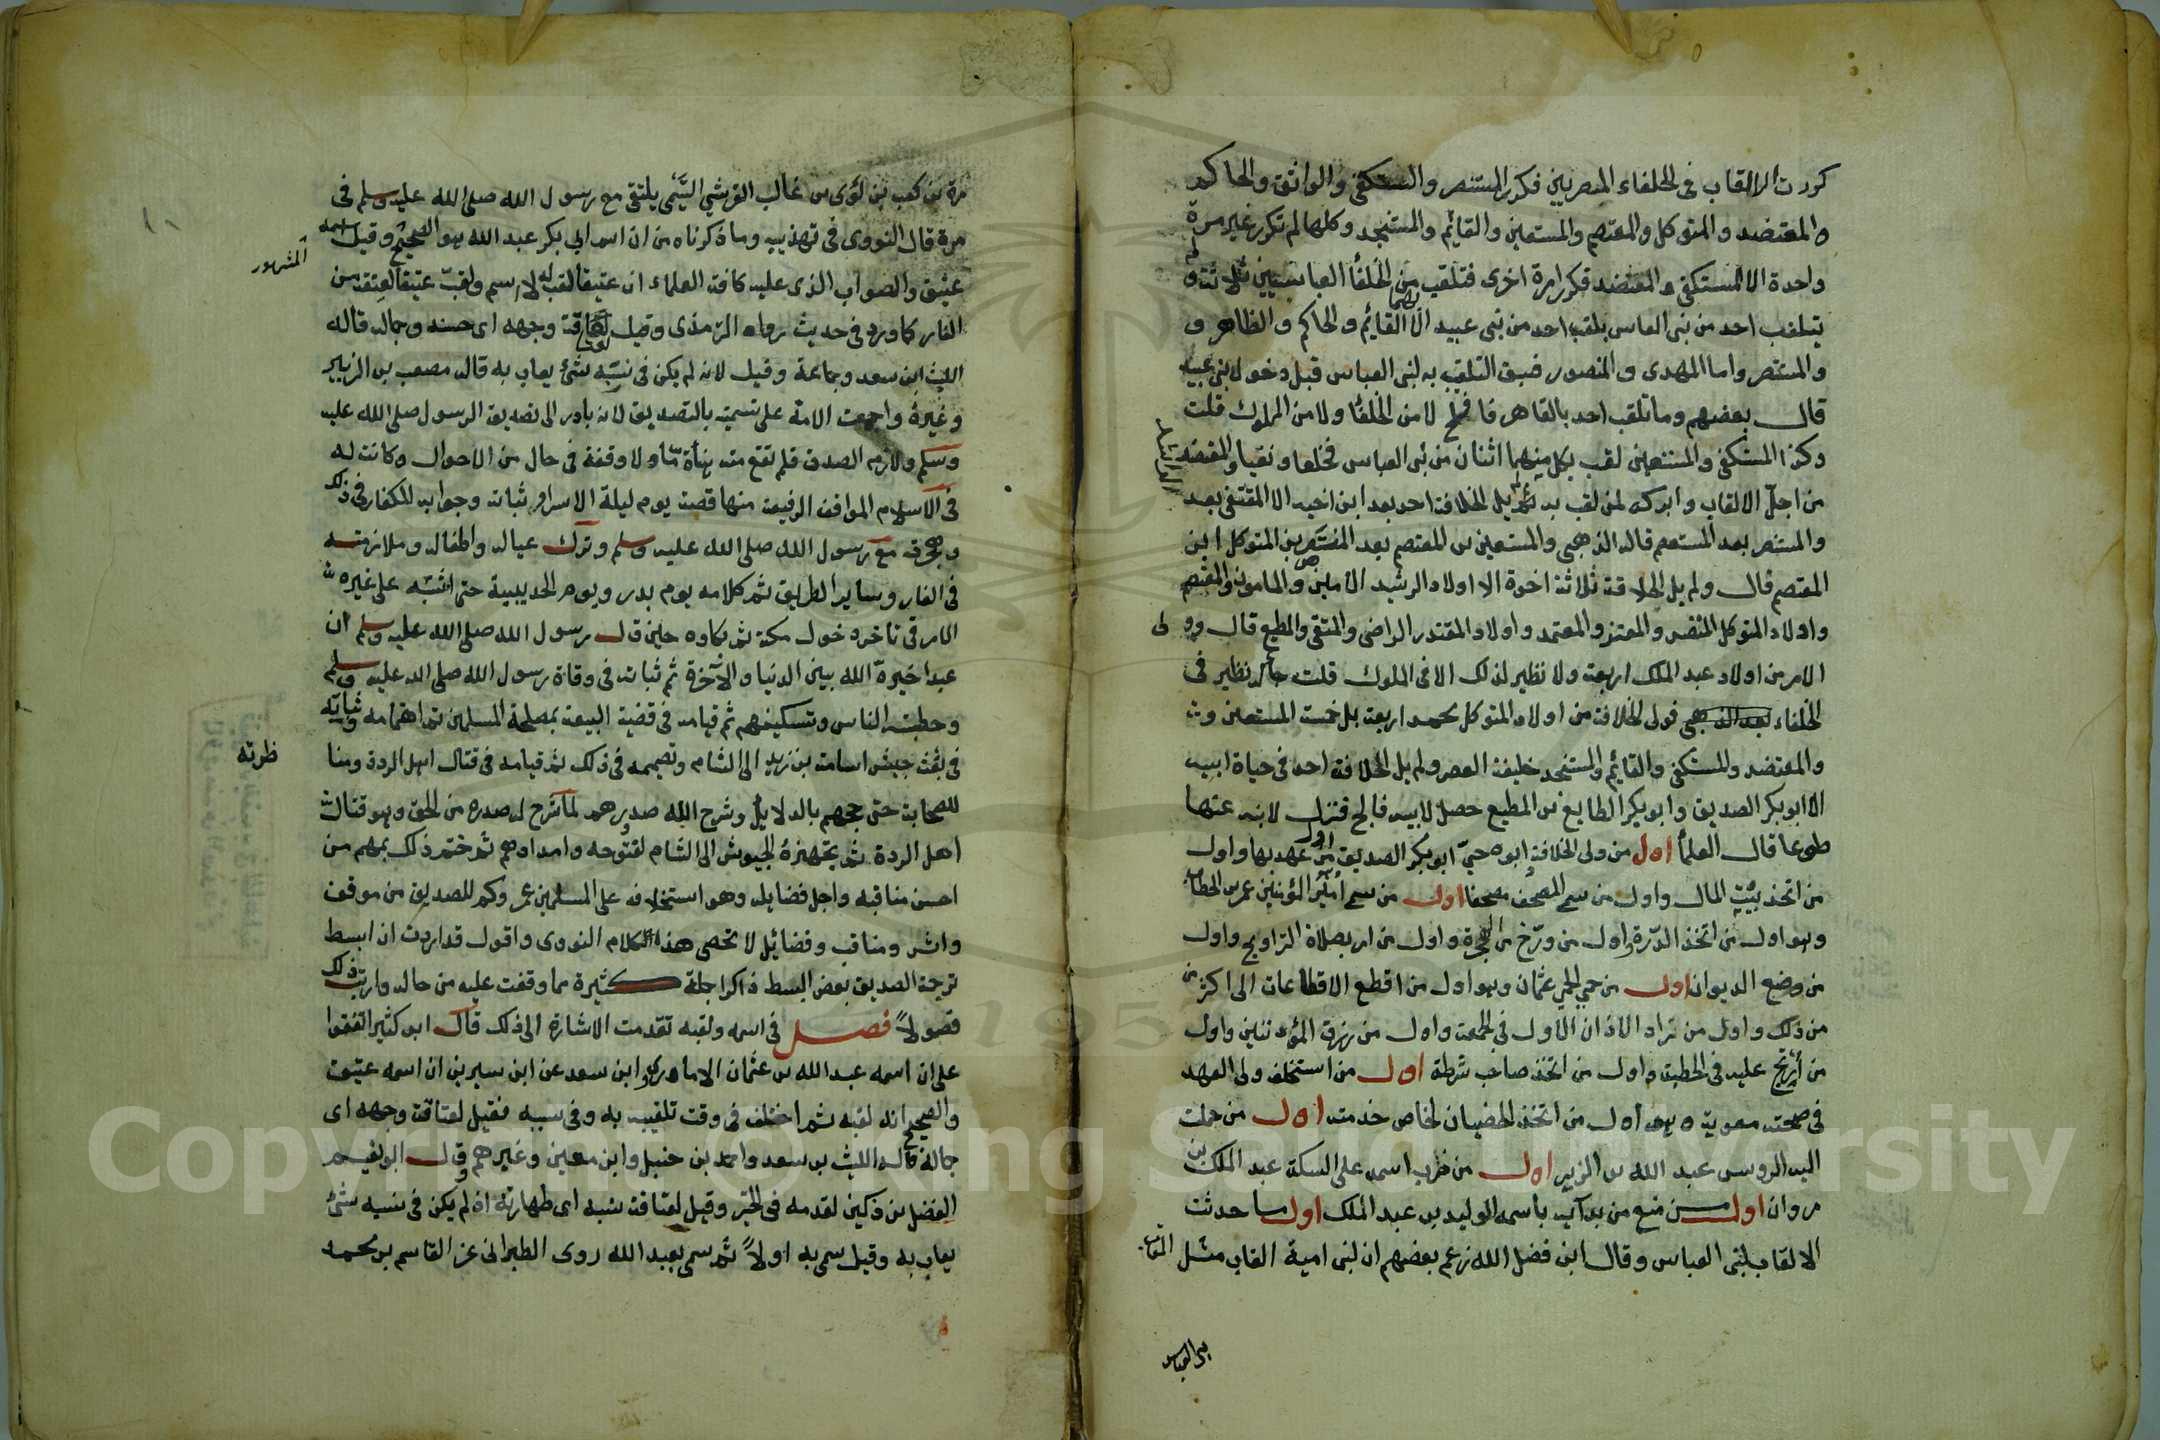 كررت الالقاب فى الخلفاء المصريين فكرر المستنصر والمستكفى والواثق والحاكم
والمعتضد والمتوكل والمعتصم والمستعين والقايم والمستنجد وكلها لم تكرر غير مرة
واحدة الا المستكفى والمعتضد فكررا مرة اخرى فتلقب بهما من الخلفأ العباسيين ثلاثة ولم
يتلقب احد من بنى العباس بلقب احد من بنى عبيد الا القايم والحاكم والظاهر و
والمستنصر واما المهدى والمنصور فسبق التلقيب به لبنى العباس قبل دخول لابنى عبيد
قال بعضهم وما تلقب احد بالقاهر فافلح لا من الخلفأ ولا من الملوك قلت
وكذا المستكفى والمستعين لقب بكل منهما اثنان من بنى العباس فخلعا ونفيا والمعتضد
من اجل الالقاب وابركه لمن لقب به ولم يل الخلافة احد بعد ابن اخيه الا المقتفى بعد
والمستنصر بعد المستعصم قاله الذهبى والمستعين بن المعتصم بعد المنتصر بن المتوكل ابن
المعتصم قال ولم يل الخلافة ثلاثة اخوة الا اولاد الرشيد الامين والمامون والمعتصم
واولاد المتوكل المنتصر والمعتز والمعتمد واولاد المقتدر الراضى والمتقى والمطيع قال وولى
الامر من اولاد عبد الملك اربعة ولا نظير لذلك الا فى الملوك قلت حاله نظير فى
الخلفاء بعد الذهبى فولى الخلافة من اولاد المتوكل محمد اربعة بل خمسة المستعين و
والمعتضد والمستكفى والقايم والمستنجد خليفة العصر ولم يل الخلافة احد فى حياة ابيه
الا ابو بكر الصديق وابو بكر الطايع بن المطيع حصل لابيه فالج فنزل لابنه عنها
طوعا قال العلمأ اول من ولى الخلافة ابوه حيّ ابو بكر الصديق اول من عهد بها واول
من اتخذ بيت المال واول من سمى المصحف مصحفا اول من سمى امير المؤمنين عمر بن الخطاب
وهو اول من اتخذ الدرة واول من ورّخ من الهجرة واول من امر بصلاة التراويح واول
من وضع الديوان اول من حمى الحمى عثمان وهو اول من اقطع الاقطاعات الى اكثر من
من ذلك واول من زاد الاذان الاول فى الجمعة واول من رزق المؤذنين واول
من أُرتج عليه فى الخطبة واول من اتخذ صاحب شرطة اول من استخلف ولى العهد
فى صحته معوية وهو اول من اتخذ الخصيان لخاص خدمته اول من حملت
اليه الروس عبد الله بن الزبير اول من ضرب اسمه على السكة عبد الملك بن
مروان اول من منع من ندآيه باسمه الوليد بن عبد الملك اول ما حدثت
الالقاب لبنى العباس وقال ابن فضل الله زعم بعضهم ان لبنى امية القاب مثل القاب
بنى العباس
مرة بن كعب بن لؤى بن غالب القرشى التيمى يلتقى مع رسول الله صلى الله عليه وسلم فى
مرة قال النووى فى تهذيبه وما ذكرناه من ان اسم ابى بكر عبد الله هو الصحيح المشهور وقيل اسمه
عتيق والصواب الذى عليه كافة العلماء ان عتيقا لقب له لا اسم ولقب عتيقا لعتقه من
النار كما ورد فى حديث رواه الترمذى وقيل لعتاقة وجهه اى حسنه وجماله قاله
الليث ابن سعد وجماعة وقيل لانه لم يكن فى نسبه شئ يعاب به قاله مصعب بن الزبير
وغيره واجمعت الامة على تسميته بالصديق لانه بادر الى تصديق الرسول صلى الله عليه
وسلم ولازم الصدق فلم تقع منه هنأة مّا ولا وقفة فى حال من الاحوال وكانت له
فى الاسلام المواقف الرفيعة منها قصته يوم ليلة الاسرا وثباته وجوابه للكفار فى ذلك
وهجرته مع رسول الله صلى الله عليه وسلم وترك عياله واطفاله وملازمته
فى الغار وساير الطريق ثم كلامه يوم بدر ويوم الحديبية حتى اشتبه على غيره
الامر فى تاخر دخول مكة ثم بكاوه حين قال رسول الله صلى الله عليه وسلم ان
عبدا خيره الله بين الدنيا والآخرة ثم ثباته فى وفاة رسول الله صلى الله عليه وسلم
وخطبته الناس وتسكينهم ثم قيامه فى قضية البيعة بمصلحة المسلمين ثم اهتمامه وثباته
فى بعث جيش اسامة بن زيد الى الشام وتصميمه فى ذلك ثم قيامه فى قتال اهل الردة ومناظرته
للصحابة حتى حجهم بالدلايل وشرح الله صدورهم لما شرح له صدره من الحق وهو قتال
اهل الردة ثم تجهيزه الجيوش الى الشام لفتوحه وامدادهم ثم ختم ذلك بمهم من
احسن مناقبه واجل فضايله وهو استخلافه على المسلمين عمر وكم للصديق من موقف
واثر ومناقب وفضائل لا تحصى هذا كلام النووى واقول قد اردت ان ابسط
ترجمة الصديق بعض البسط ذاكرا جملة كثيرة مما وقفت عليه من حاله وارتب ذلك
فصولاً فصل فى اسمه ولقبه تقدمت الاشارة الى ذلك قال ابن كثير اتفقوا
على ان اسمه عبد الله بن عثمان الا ما روى ابن سعد عن ابن سيرين ان اسمه عتيق
والصحيح انه لقبه ثم اختلف فى وقت تلقيبه به وفى سببه فقيل لعتاقة وجهه اى
جماله قاله الليث بن سعد واحمد بن حنبل وابن معين وغيرهم وقال ابو نعيم
الفضل بن دكين لقدمه فى الخير وقيل لعتاقة نسبه اى طهارته اذ لم يكن فى نسبه شئ
يعاب به وقيل سمى به اولاً ثم سمى بعبد الله روى الطبرانى عن القاسم بن محمد
Copyright © King Saud University
195